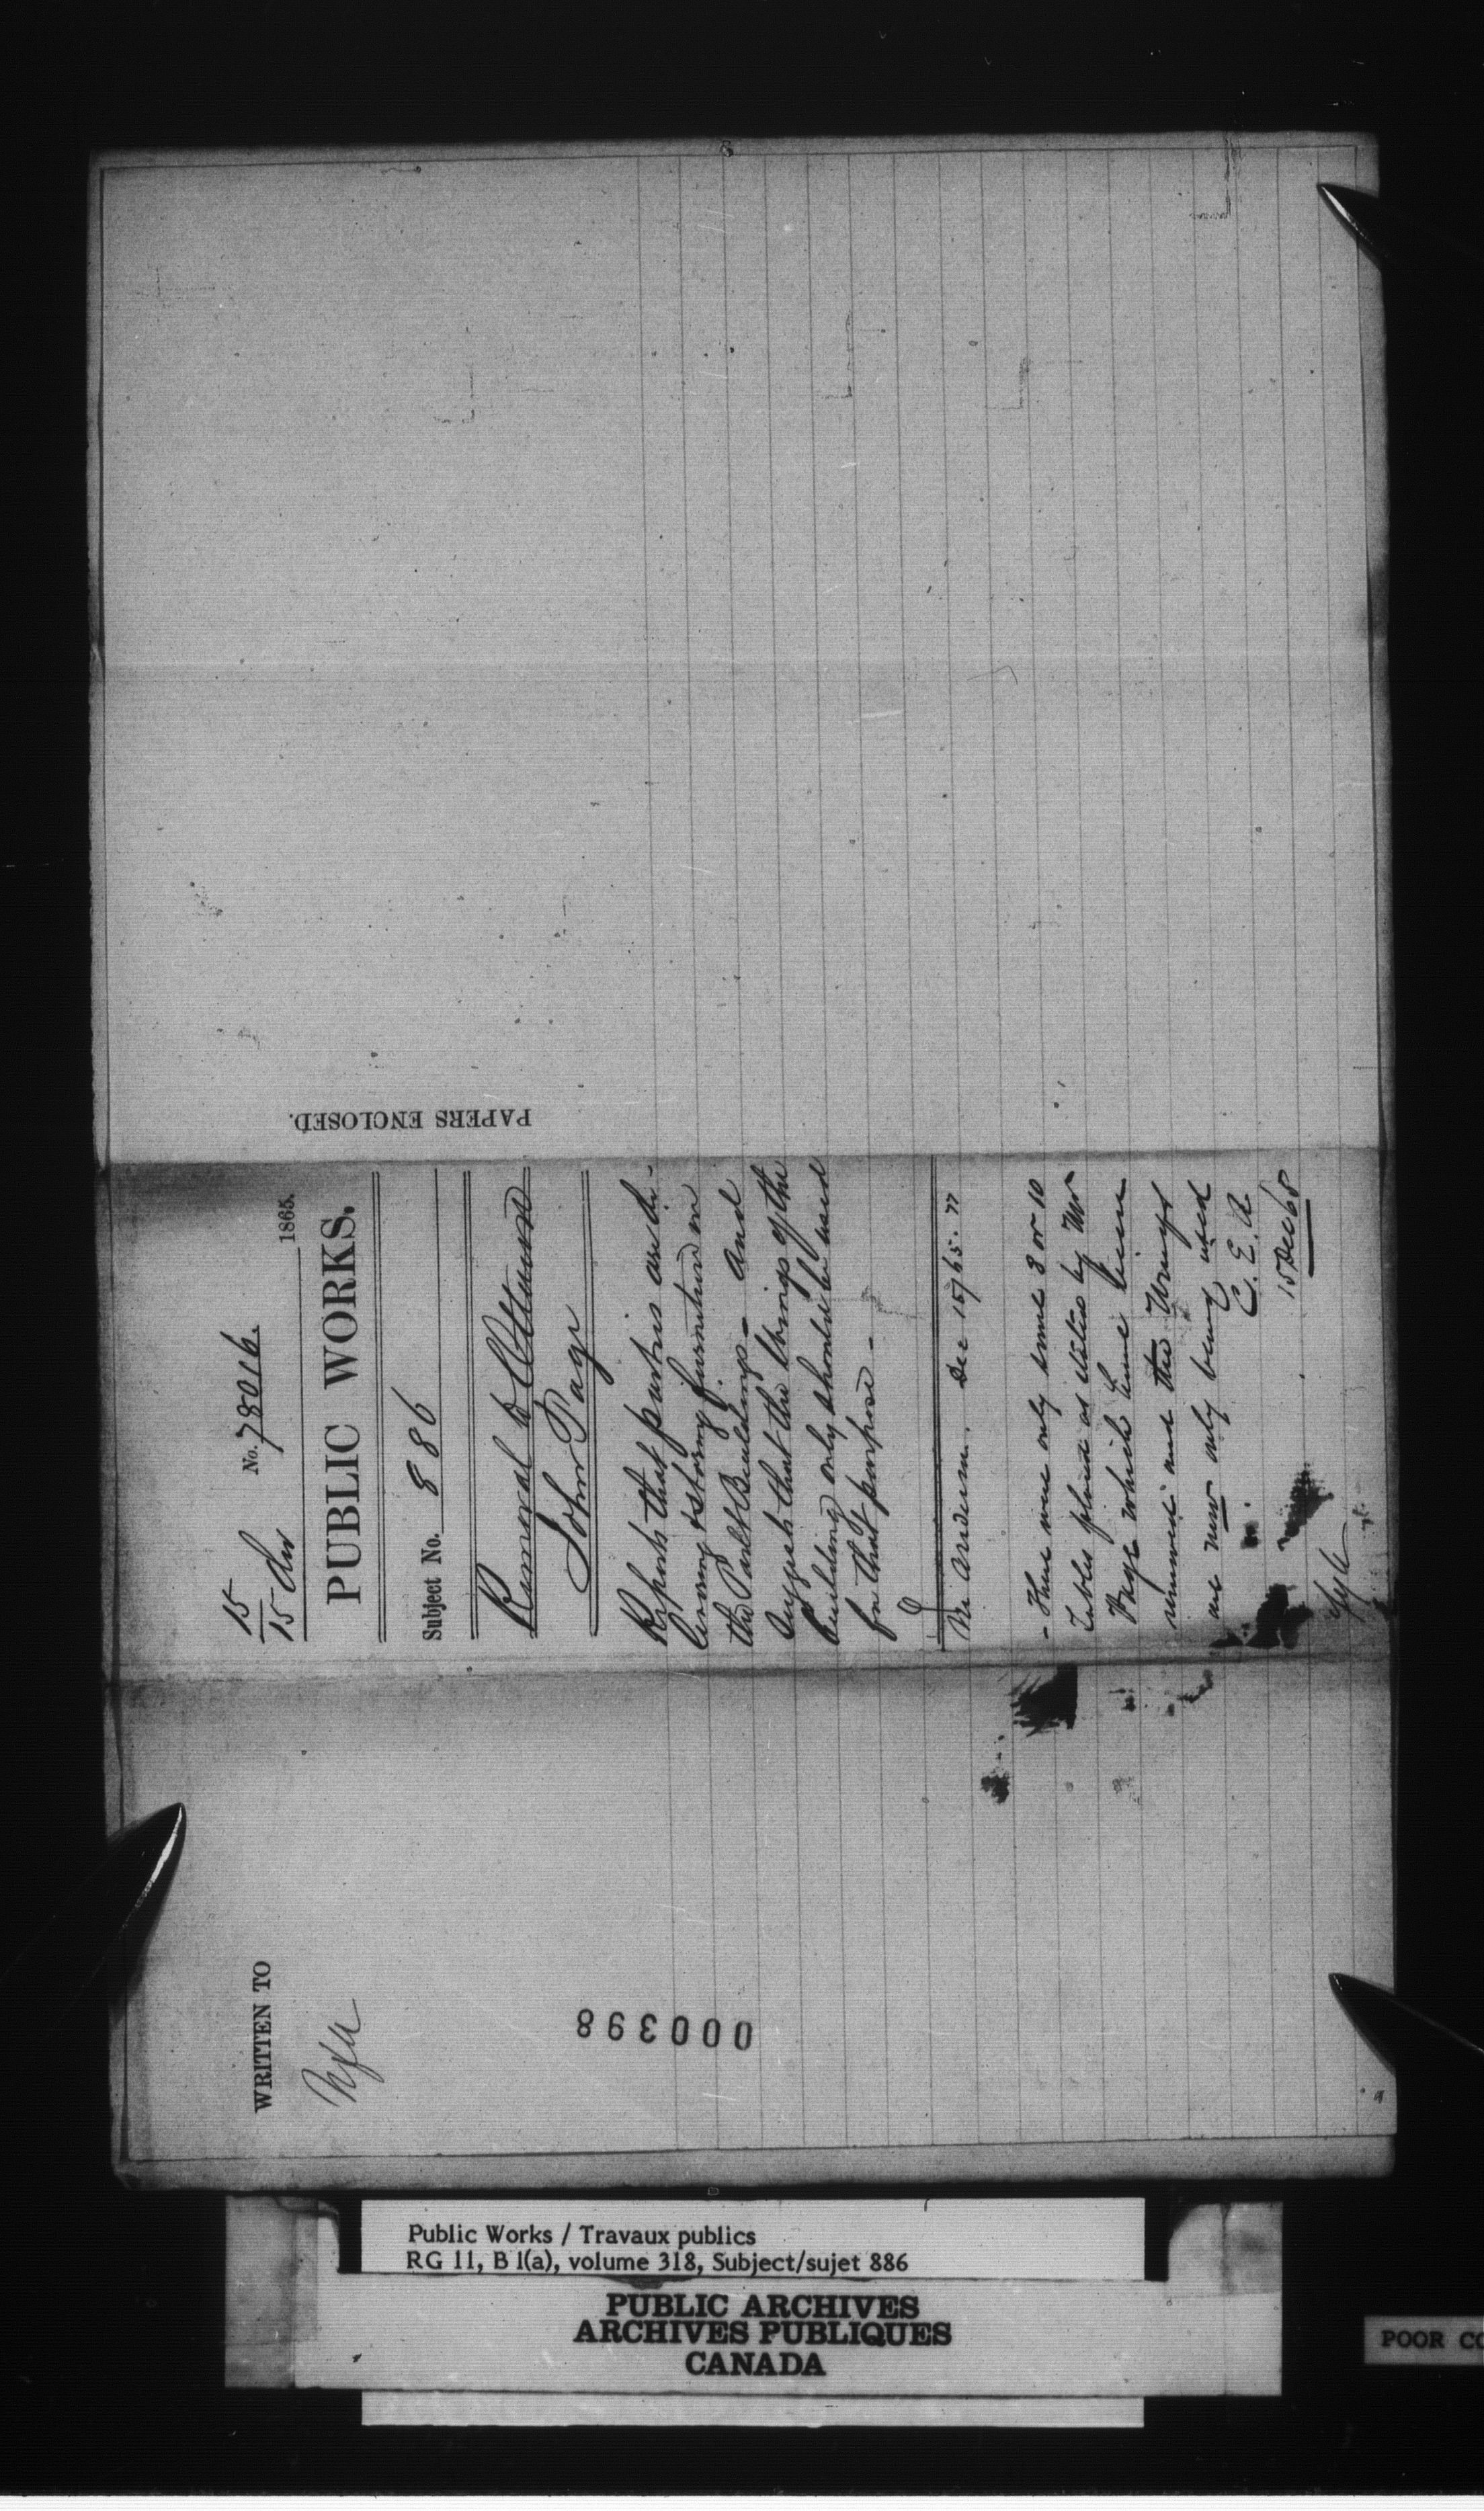 15
15 Dec
No. 78016.
1865.
PUBLIC WORKS.
Subject No. 886
Removal to Ottawa
John Page
Reports that parties are de-
livering & storing furniture in
the Parlt Buildings - and
suggests that the Wings of the
building only should be used
for that purpose -
Mr Dec 15/65. 77
- There were only some 8 or 10
Tables placed as stated by Mr
Page which have been
removed and the Wings
are now only being used
C. E. A
15 Dec 65
PAPERS ENCLOSED.
WRITTEN TO
000398
Public Works / Travaux publics
RG 11, B 1(a), volume 318, Subject/sujet 886
PUBLIC ARCHIVES
ARCHIVES PUBLIQUES
CANADA
POOR